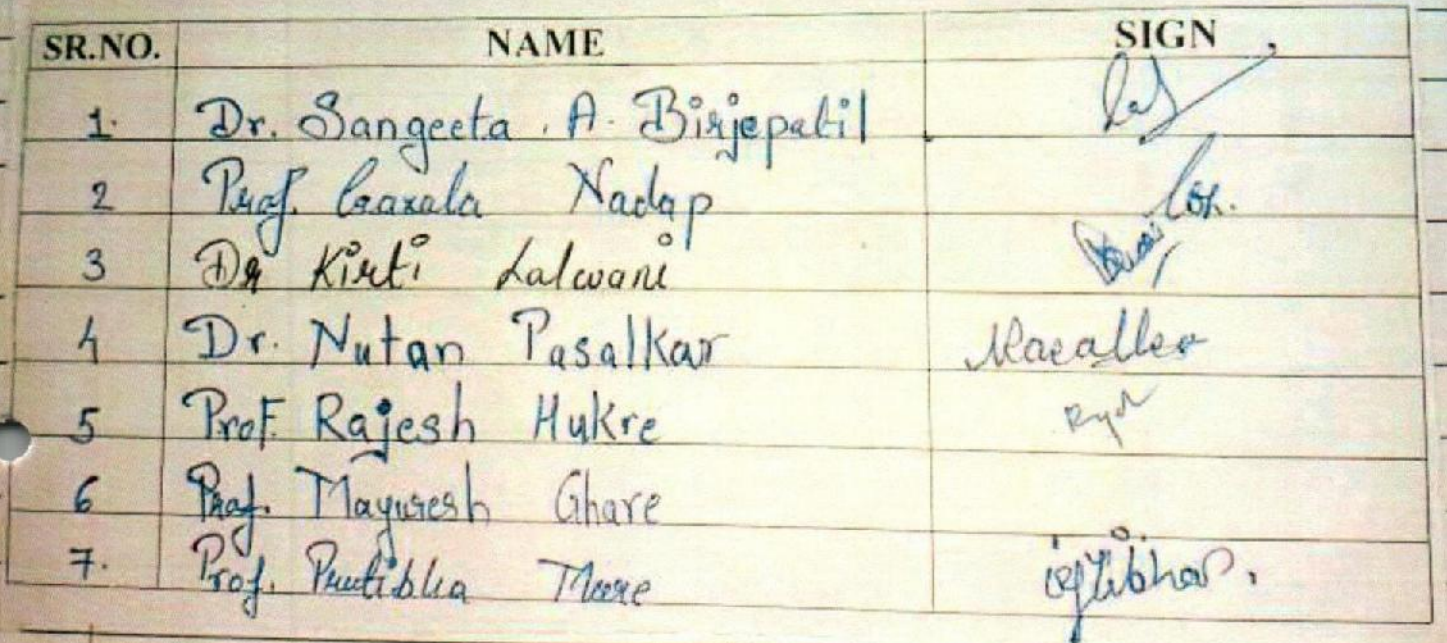 SR.NO. NAME SIGN
1. Dr. Sangeeta . A. Birjepatil
2 Prof. Gazala Nadap
3 Dr Kirti Lalwani
4 Dr. Nutan Pasalkar
5 Prof. Rajesh Hukre
6 Prof. Mayuresh Ghare
7. Prof. Pratibha More